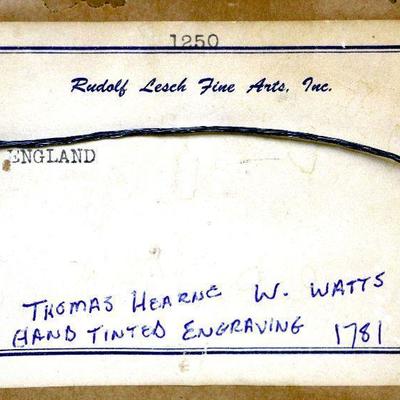 1250
Rudolf Lesch Fine Arts, Inc.
ENGLAND
THOMAS HEARNE W. WATTS
HAND TINTED ENGRAVING 1781